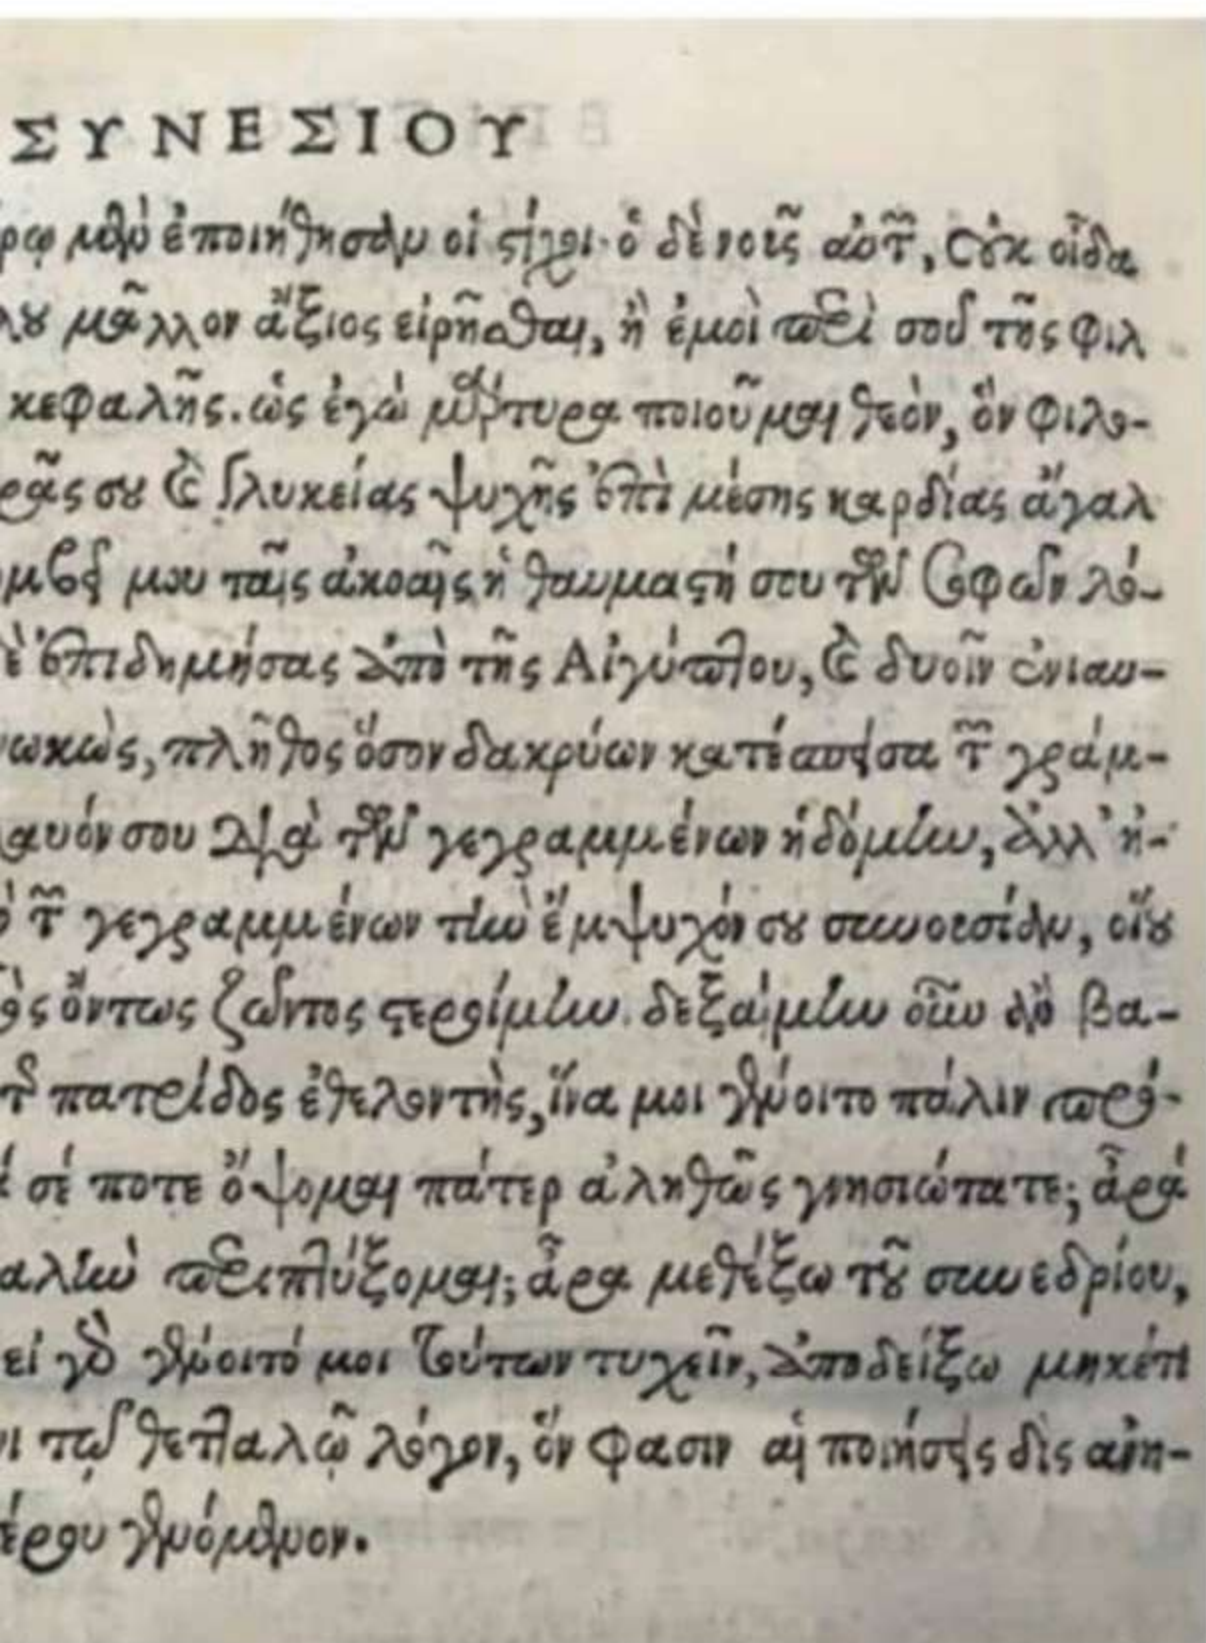 ΣΥΝΕΣΙΟΥ
ρῳ μὲν ἐποιήθησαν οἱ στίχοι· ὁ δὲ νοῦς αὐτῶν, οὐκ οἶδα
λου μᾶλλον ἄξιος εἰρῆσθαι, ἢ ἐμοὶ περὶ σοῦ τῆς φιλ
κεφαλῆς. ὡς ἐγὼ μάρτυρα ποιοῦμαι θεὸν, ὃν φιλο-
ρᾶς σου καὶ γλυκείας ψυχῆς ἐπὶ μέσης καρδίας ἄγαλ
ομβεῖ μου ταῖς ἀκοαῖς ἡ θαυμαστή σου τῶν σοφῶν λό-
ἐπιδημήσας ἀπὸ τῆς Αἰγύπτου, καὶ δυοῖν ἐνιαυ-
νωκὼς, πλῆθος ὅσον δακρύων κατέπεισα τῶν γράμ-
αυόν σου διὰ τῶν γεγραμμένων ἡδόμην, ἀλλ' ἠ-
τῶν γεγραμμένων τὴν ἔμψυχόν σου συνουσίαν, οἵου
ὸς ὄντως ζῶντος στεροίμην. δεξαίμην οὖν ἂν βα-
τῆς πατρίδος ἐθελοντὴς, ἵνα μοι γένοιτο πάλιν πρό-
σέ ποτε ὄψομαι πάτερ ἀληθῶς γνησιώτατε; ἆρά
αλὴν περιπτύξομαι; ἆρα μεθέξω τοῦ συνεδρίου,
εἰ γὰρ γένοιτό μοι τούτων τυχεῖν, ἀποδείξω μηκέτι
τῷ θετταλῷ λόγον, ὅν φασιν αἱ ποιήσεις δὶς
έρου γενόμενον.